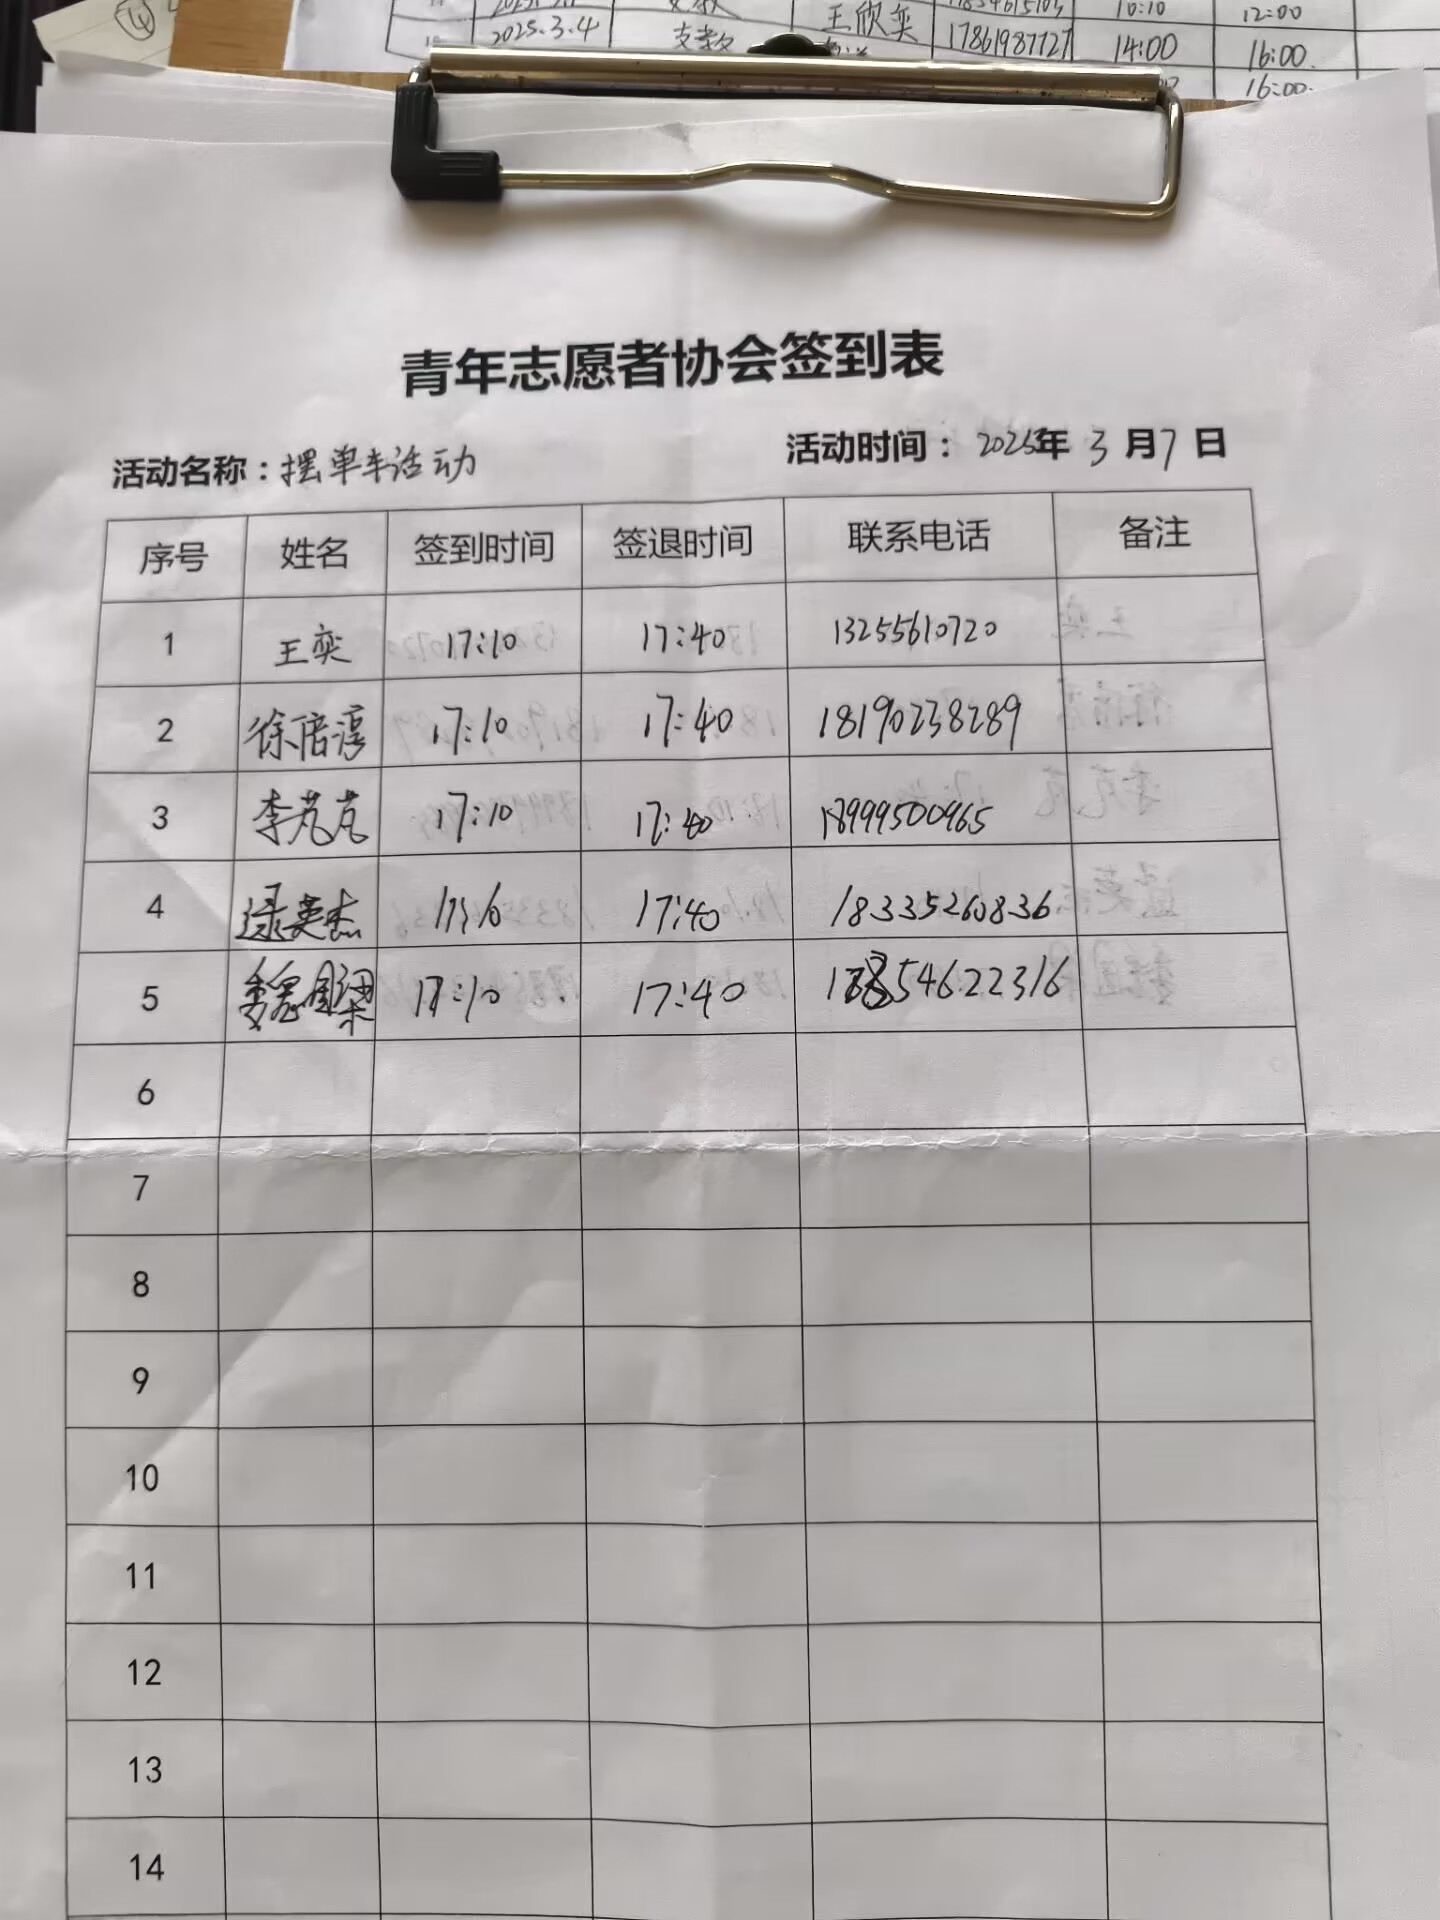 2025.3.4 支教 王欣奕 17861987727 14:00 16:00.
16:00.
10:10 12:00
青年志愿者协会签到表
活动名称：摆单车活动 活动时间：2025年3月7日
序号 姓名 签到时间 签退时间 联系电话 备注
1 王奕 17:10 17:40 13255610720
2 徐倍淳 17:10 17:40 18190238289
3 李芃芃 17:10 17:40 18999500965
4 逯英杰 17:40 18335260836
5 魏国梁 17:10 17:40
6
7
8
9
10
11
12
13
14